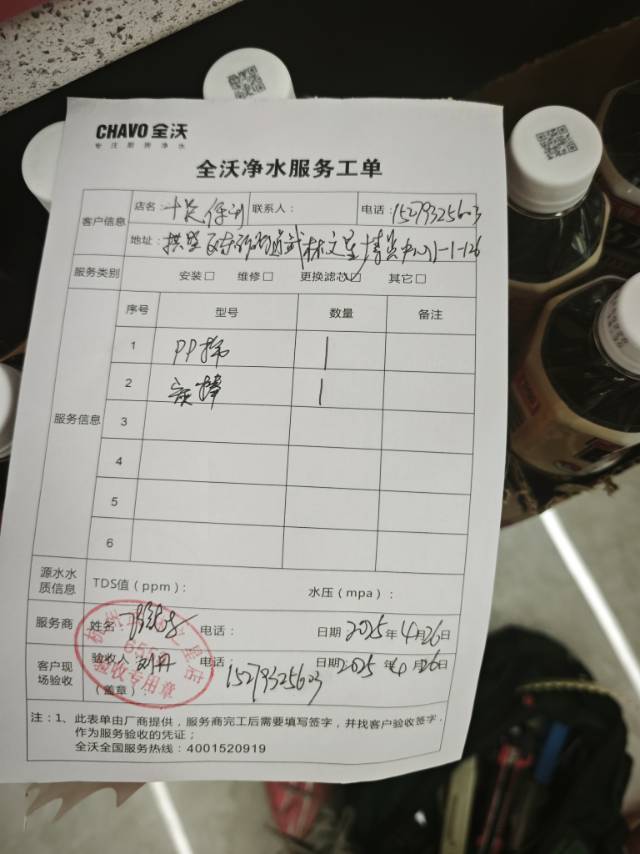 CHAVO 全沃
专注厨房净水
全沃净水服务工单
客户信息
店名: 联系人: 电话: 15279325603
地址:
服务类别 安装□ 维修□ 更换滤芯☑ 其它□
服务信息
序号 型号 数量 备注
1 PP棉 1
2 炭棒 1
3
4
5
6
源水水质信息 TDS值(ppm): 水压(mpa):
服务商 姓名 电话: 日期 2025年4月26日
客户现场验收 验收人 电话 15279325603 日期 2025年4月26日
(盖章)
验收专用章
注:1、此表单由厂商提供,服务商完工后需要填写签字,并找客户验收签字,
作为服务验收的凭证;
全沃全国服务热线:4001520919